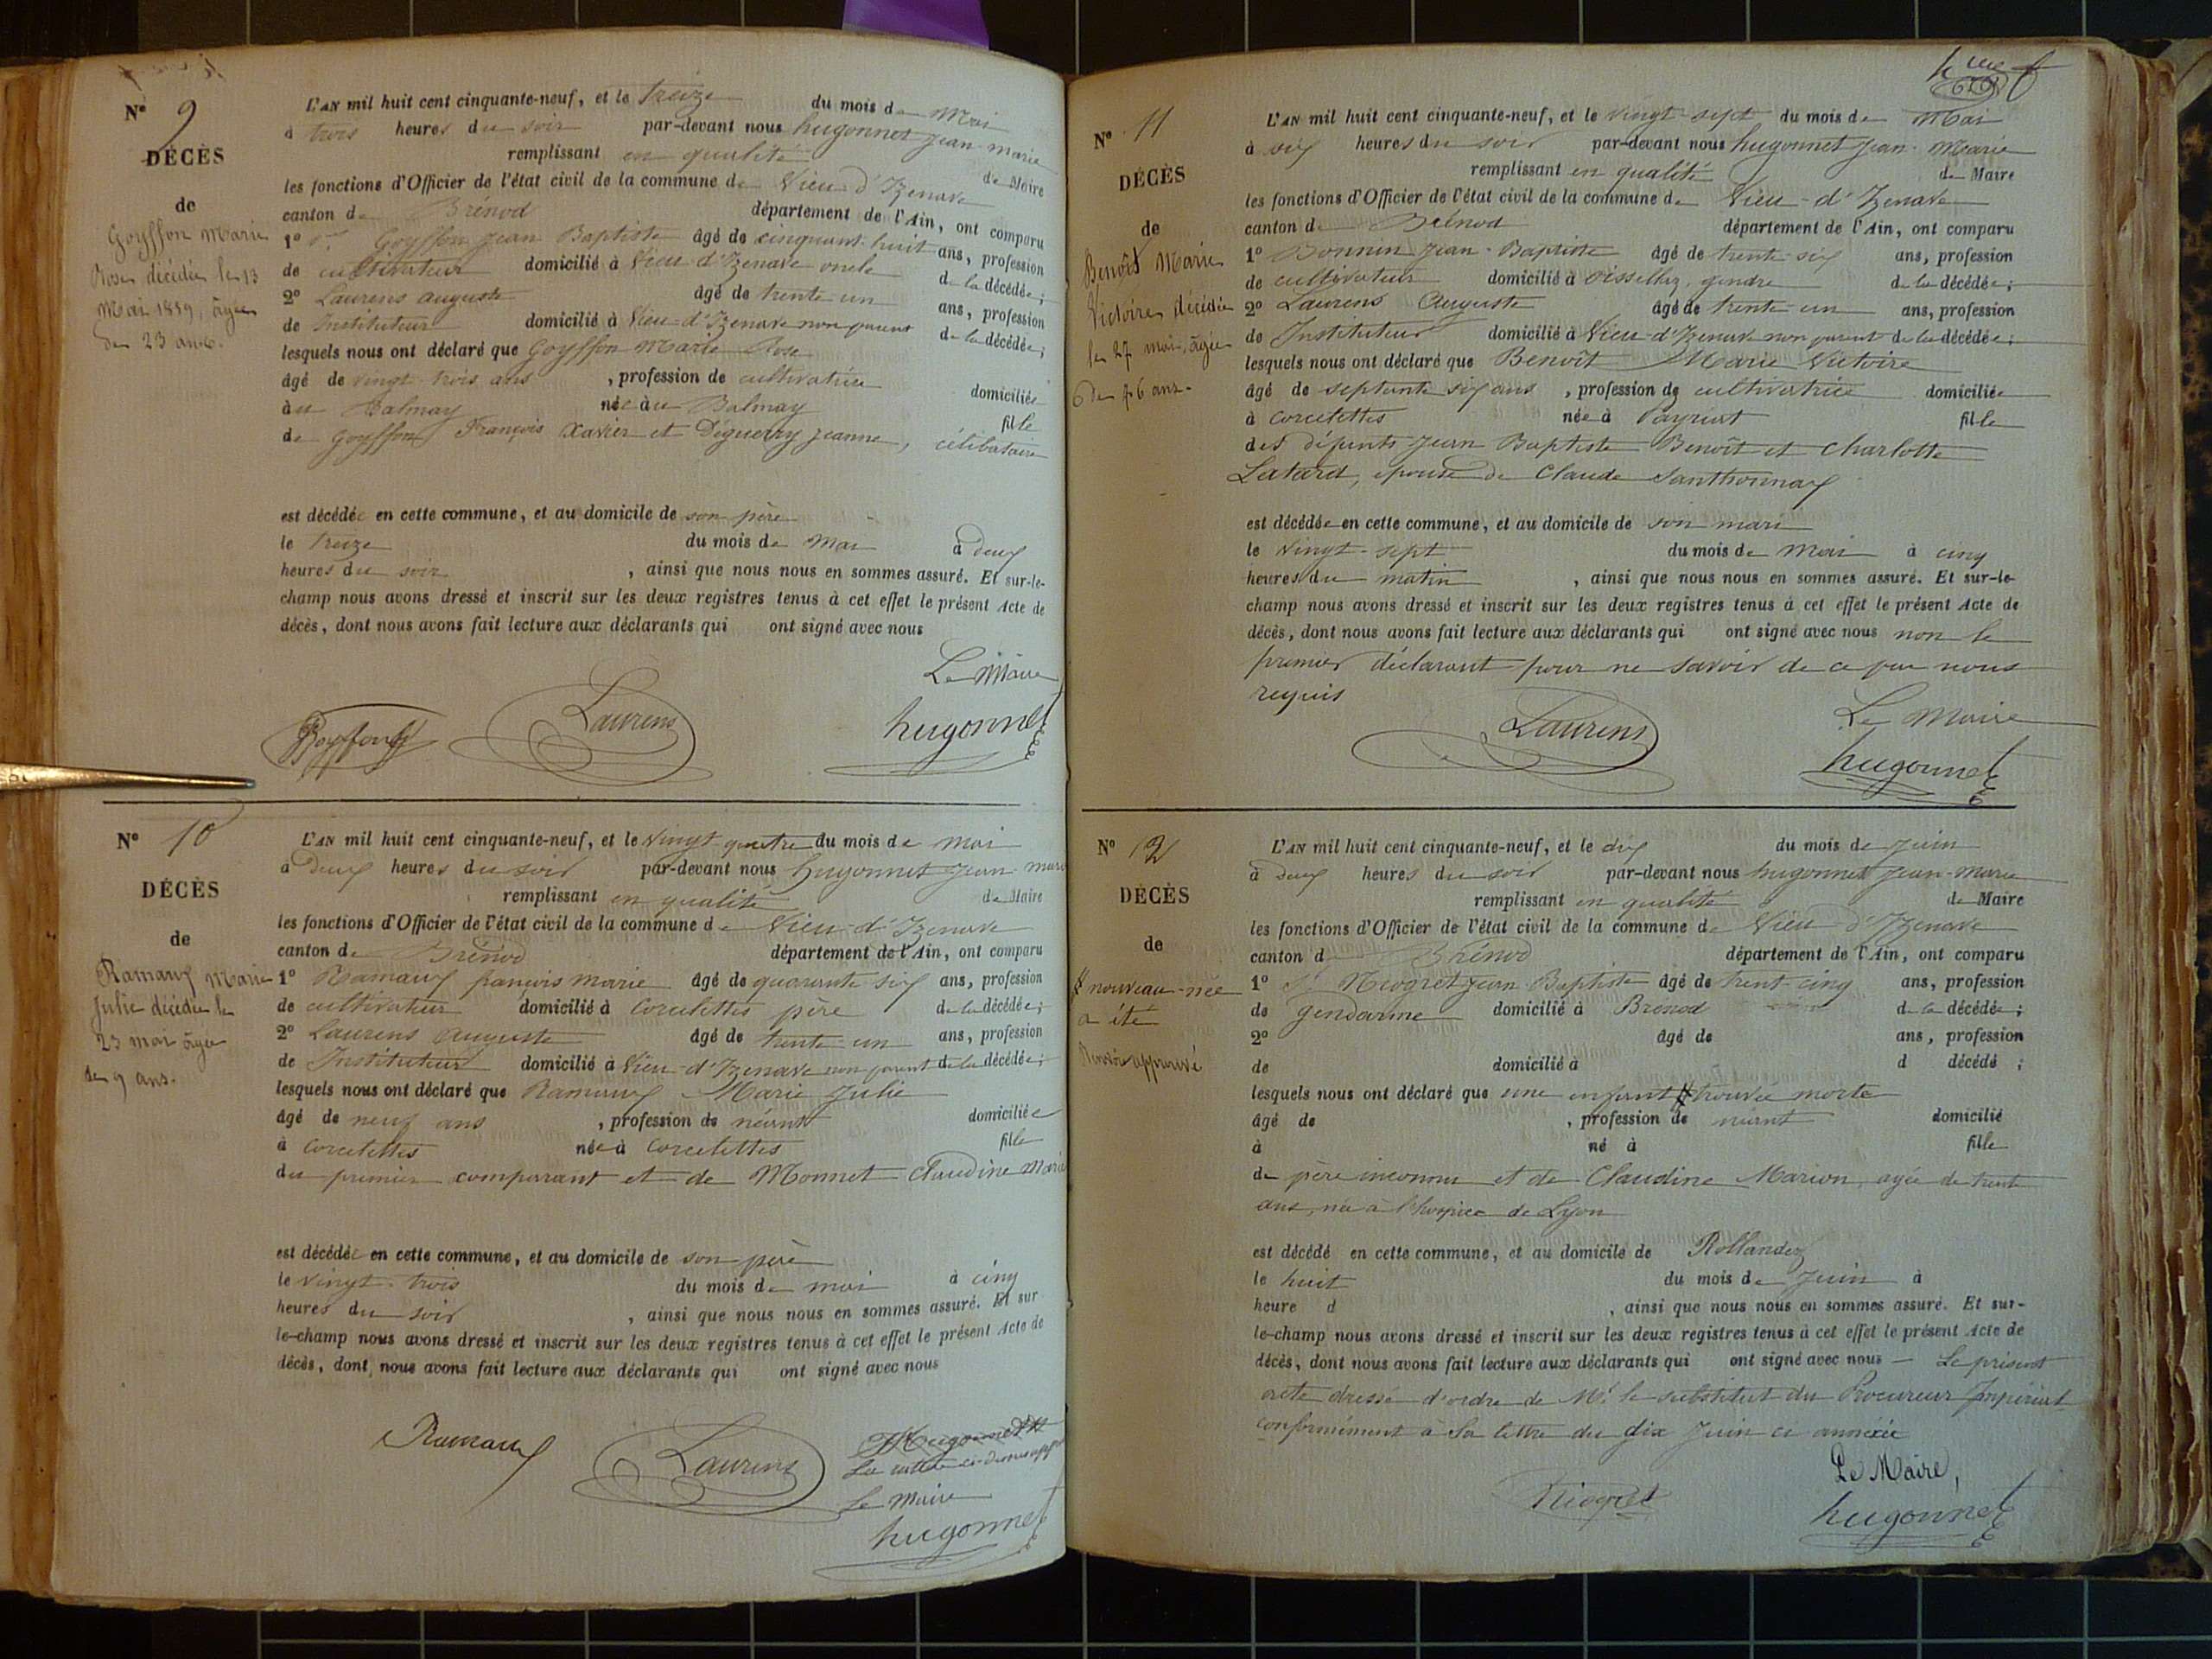 N° 9
DÉCÈS
de
Goyffon Marie
Rose décédée le 13
Mai 1859, âgée
de 23 ans.
L'AN mil huit cent cinquante-neuf, et le treize du mois de Mai
à trois heures du soir par-devant nous hugonnet jean marie
remplissant en qualité de Maire
les fonctions d'Officier de l'état civil de la commune de Vieu d'Izenave
canton de Brénod département de l'Ain, ont comparu
1° Goyffon Jean Baptiste âgé de cinquant huit ans, profession
de cultivateur domicilié à Vieu d'Izenave oncle de la décédée;
2° Laurens auguste âgé de trente un ans, profession
de Instituteur domicilié à Vieu-d'Izenave non parent de la décédée;
lesquels nous ont déclaré que Goyffon Marie Rose
âgé de vingt trois ans , profession de cultivatrice domiciliée
au Balmay née au Balmay fille
de Goyffon François Xavier et Déguerry jeanne, célibataire
est décédée en cette commune, et au domicile de son père
le treize du mois de Mai à deux
heures du soir , ainsi que nous nous en sommes assuré. Et sur-le-
champ nous avons dressé et inscrit sur les deux registres tenus à cet effet le présent Acte de
décès, dont nous avons fait lecture aux déclarants qui ont signé avec nous
Le Maire
Goyffon Laurens hugonnet
N° 10
DÉCÈS
de
Ramaux Marie
Julie décédée le
23 mai âgée
de 9 ans.
L'AN mil huit cent cinquante-neuf, et le vingt quatre du mois de mai
à deux heures du soir par-devant nous hugonnet Jean marie
remplissant en qualité de Maire
les fonctions d'Officier de l'état civil de la commune de Vieu-d'Izenave
canton de Brénod département de l'Ain, ont comparu
1° Ramaux françois marie âgé de quarante six ans, profession
de cultivateur domicilié à Corcelettes père de la décédée;
2° Laurens auguste âgé de trente un ans, profession
de Instituteur domicilié à Vieu-d'Izenave non parent de la décédée;
lesquels nous ont déclaré que Ramaux Marie Julie
âgé de neuf ans , profession de néant domiciliée
à Corcelettes née à Corcelettes fille
du premier comparant et de Monnet Claudine Marie
est décédée en cette commune, et au domicile de son père
le vingt-trois du mois de mai à cinq
heures du soir , ainsi que nous nous en sommes assuré. Et sur
le-champ nous avons dressé et inscrit sur les deux registres tenus à cet effet le présent Acte de
décès, dont nous avons fait lecture aux déclarants qui ont signé avec nous
Ramaux Laurens Hugonnet
Le Maire
hugonnet
N° 11
DÉCÈS
de
Benoît Marie
Victoire décédée
le 27 mai, âgée
de 76 ans.
L'AN mil huit cent cinquante-neuf, et le vingt-sept du mois de Mai
à six heures du soir par-devant nous hugonnet Jean-Marie
remplissant en qualité de Maire
les fonctions d'Officier de l'état civil de la commune de Vieu-d'Izenave
canton de Brénod département de l'Ain, ont comparu
1° Bonnin Jean-Baptiste âgé de trente-six ans, profession
de cultivateur domicilié à gendre de la décédée;
2° Laurens Auguste âgé de trente un ans, profession
de Instituteur domicilié à Vieu-d'Izenave non parent de la décédée;
lesquels nous ont déclaré que Benoît Marie Victoire
âgé de septante six ans , profession de cultivatrice domiciliée
à Corcelettes née à Peyriat fille
des défunts Jean Baptiste Benoît et Charlotte
Latard, épouse de Claude Santhonnax
est décédée en cette commune, et au domicile de son mari
le vingt-sept du mois de Mai à cinq
heures du matin , ainsi que nous nous en sommes assuré. Et sur-le-
champ nous avons dressé et inscrit sur les deux registres tenus à cet effet le présent Acte de
décès, dont nous avons fait lecture aux déclarants qui ont signé avec nous non le
premier déclarant pour ne savoir de ce par nous
requis
Laurens Le Maire
hugonnet
N° 12
DÉCÈS
de
nouveau-née
a été
Renvoi approuvé
L'AN mil huit cent cinquante-neuf, et le dix du mois de Juin
à deux heures du soir par-devant nous hugonnet Jean-Marie
remplissant en qualité de Maire
les fonctions d'Officier de l'état civil de la commune de Vieu-d'Izenave
canton d Brénod département de l'Ain, ont comparu
1° Sr Niogret Jean Baptiste âgé de trent-cinq ans, profession
de gendarme domicilié à Brénod de la décédée;
2° âgé de ans, profession
de domicilié à d décédé ;
lesquels nous ont déclaré que une enfant trouvée morte
âgé de , profession de néant domicilié
à né à fille
de père inconnu et de Claudine Marion, agée de trente
ans, née à l'hospice de Lyon
est décédé en cette commune, et au domicile de Rollandez
le huit du mois de Juin à
heure d , ainsi que nous nous en sommes assuré. Et sur-
le-champ nous avons dressé et inscrit sur les deux registres tenus à cet effet le présent Acte de
décès, dont nous avons fait lecture aux déclarants qui ont signé avec nous — Le présent
acte dressé d'ordre de Mr le substitut du Procureur Impérial
conformément à sa lettre du dix Juin ci annexée
Le Maire,
Niogret hugonnet